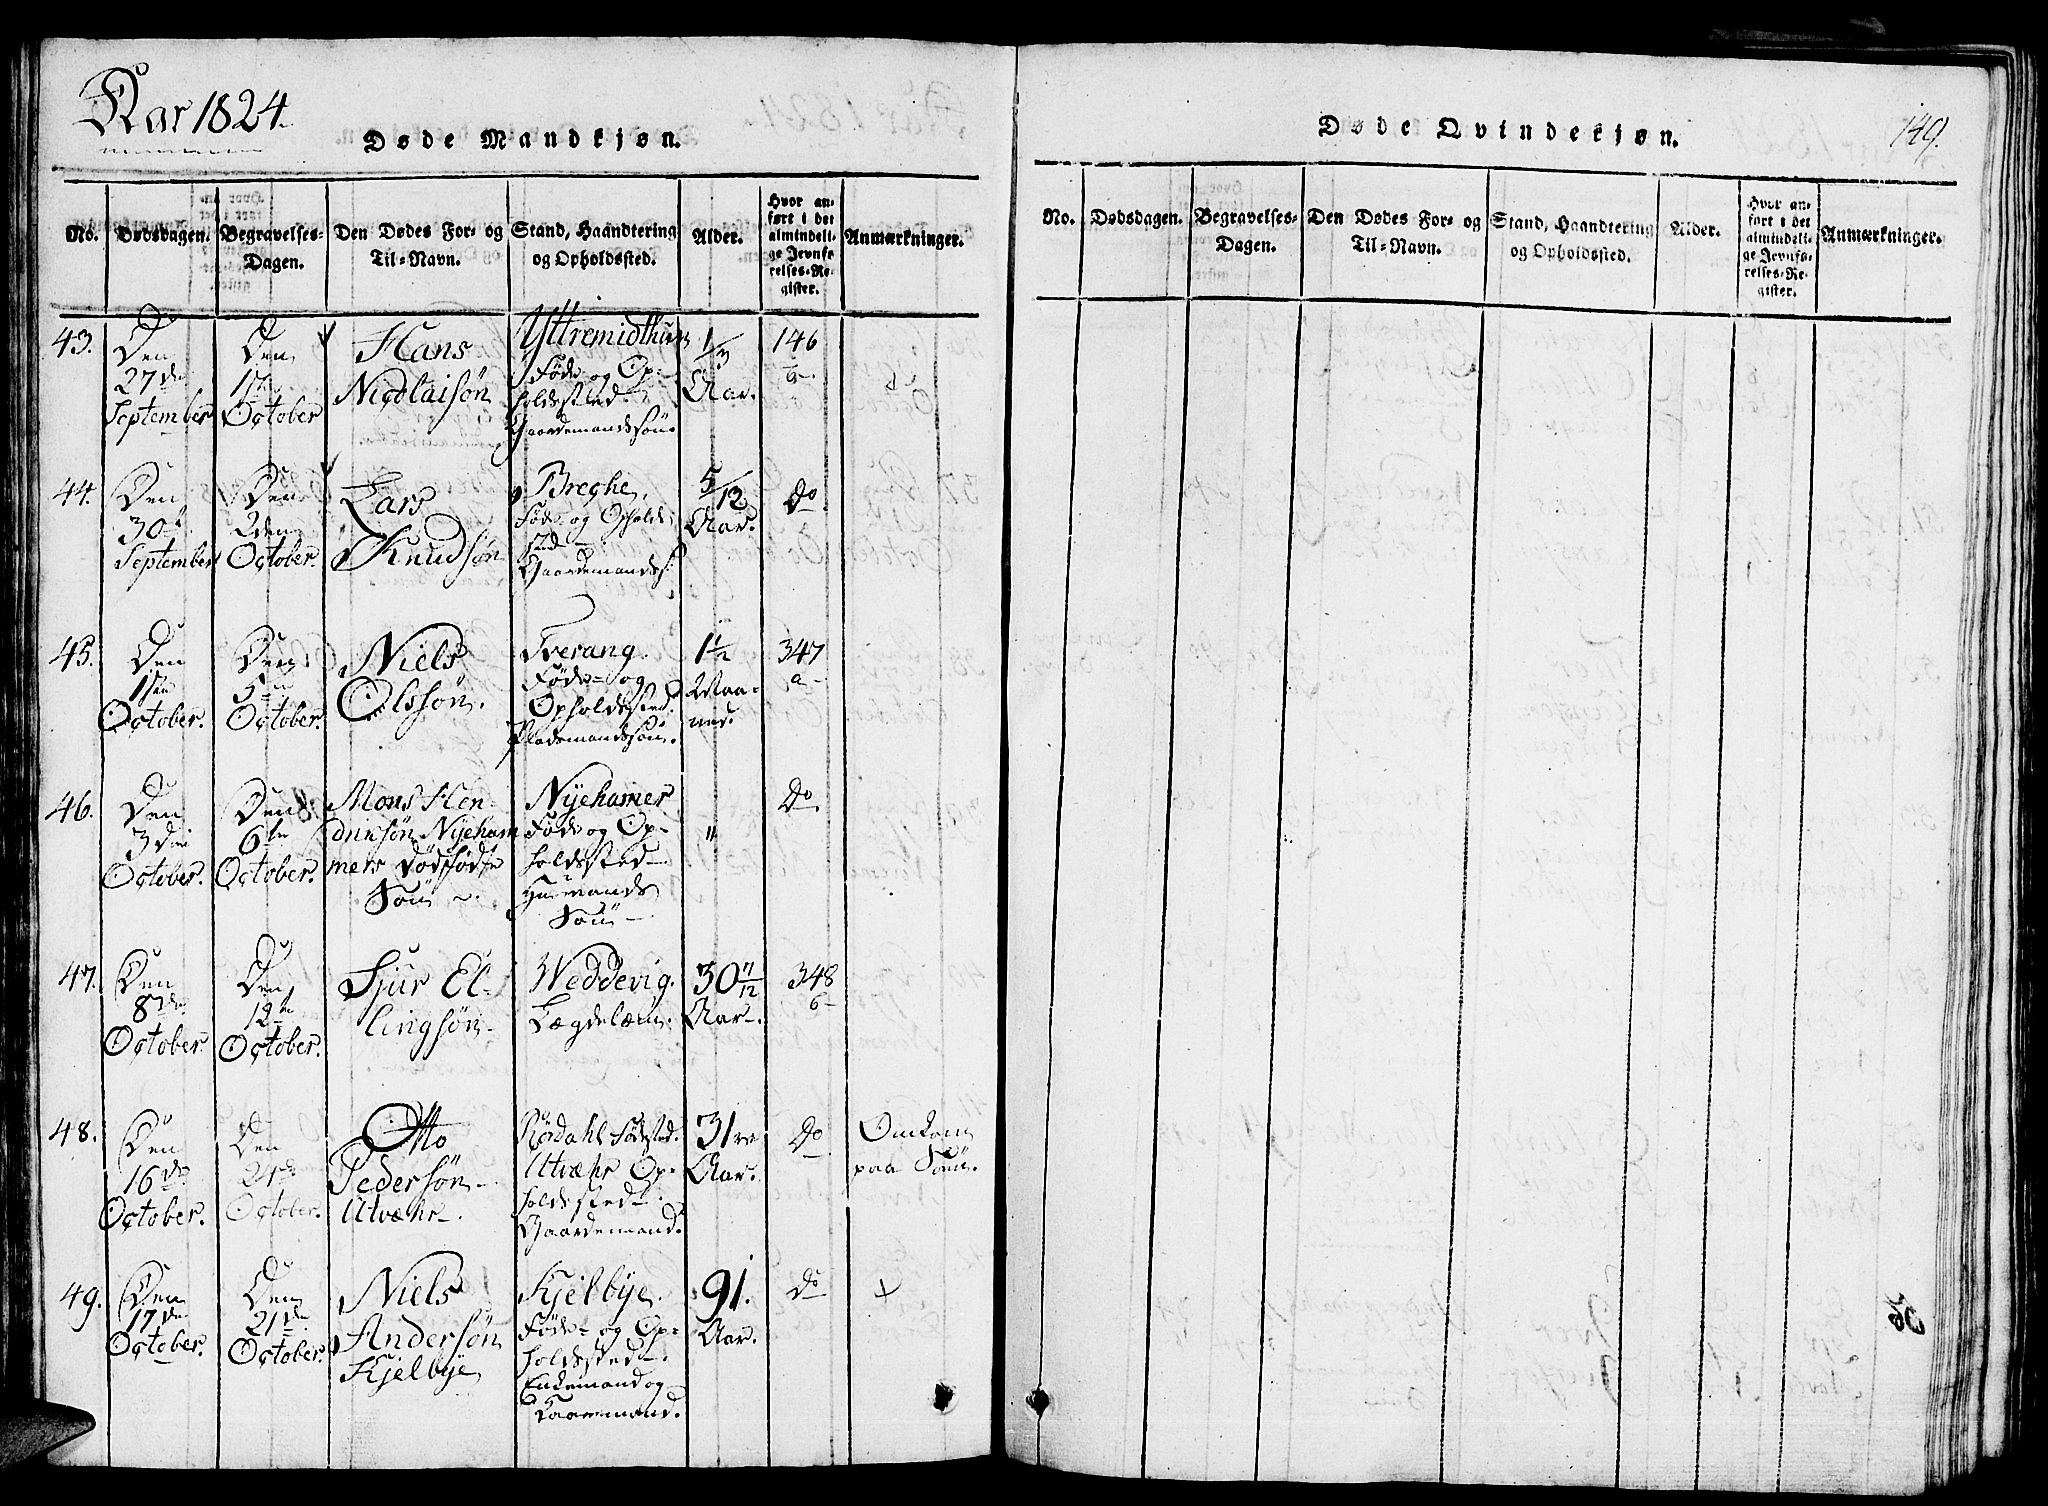 Aar 1824.
Døde Mandkjøn.
No.
Dødsdagen.
Begravelses-
Dagen.
Den Dødes For- og
Til-Navn.
Stand, Haandtering
og Opholdssted.
Alder.
Hvor an-
ført i det
almindeli-
ge Jevnfø-
relses-Re-
gister.
Anmærkninger.
43.
Den
27de
September
Den
1ste
October
Hans
Nicolaisøn
Yttremidthun
Føde og Op-
holdssted.
Gaardemandssøn.
1/3
Aar.
146
44.
Den
30te
September
Den
2den
October.
Lars
Knudsøn
Breghe,
Føde og Opholds
sted
Gaardemandss:
5/12
Aar.
Do
45.
Den
1ste
October.
Den
5te
October.
Niels
Olssøn.
Tverang.
Føde- og
Opholdssted.
Pladsmandssøn.
1½
Maa-
ned.
347
a-
46.
Den
3die
October.
Den
6te
October.
Mons Hen-
driksøn Nyeham
mers Dødfødte
Søn
Nyehamer
Føde og Op-
holdssted
Huusmands
Søn
"
Do
47.
Den
8de
October.
Den
12te
October.
Sjur El-
lingsøn
Weddevig.
Lægdslem.
30 11/12
Aar.
348
b-
48.
Den
16de
October.
Den
21de
October.
Otto
Pedersøn
Utvæhr
Rørdahl Fødested.
Utvæhr Op-
holdssted
Gaardemand.
31
Aar.
Do
Omkom
paa Søen.
49.
Den
17de
October.
Den
21de
October.
Niels
Andersøn
Kjelbye
Kjelbye.
Føde- og Op-
holdssted
Enkemand og
Kaarmand.
91.
Aar.
Do
+
Døde Qvindekjøn.
149.
No.
Dødsdagen.
Begravelses-
Dagen.
Den Dødes For- og
Til-Navn.
Stand, Haandtering
og Opholdssted.
Alder.
Hvor an-
ført i det
almindeli-
ge Jevnfø-
relses-Re-
gister.
Anmærkninger.